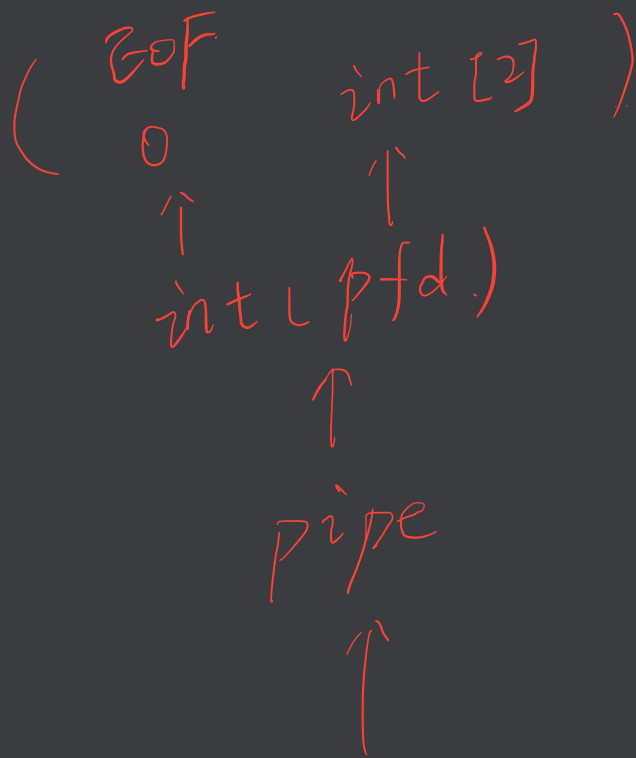 ( EOF int [2] )
0
↑ ↑
int ( pfd )
↑
pipe
↑